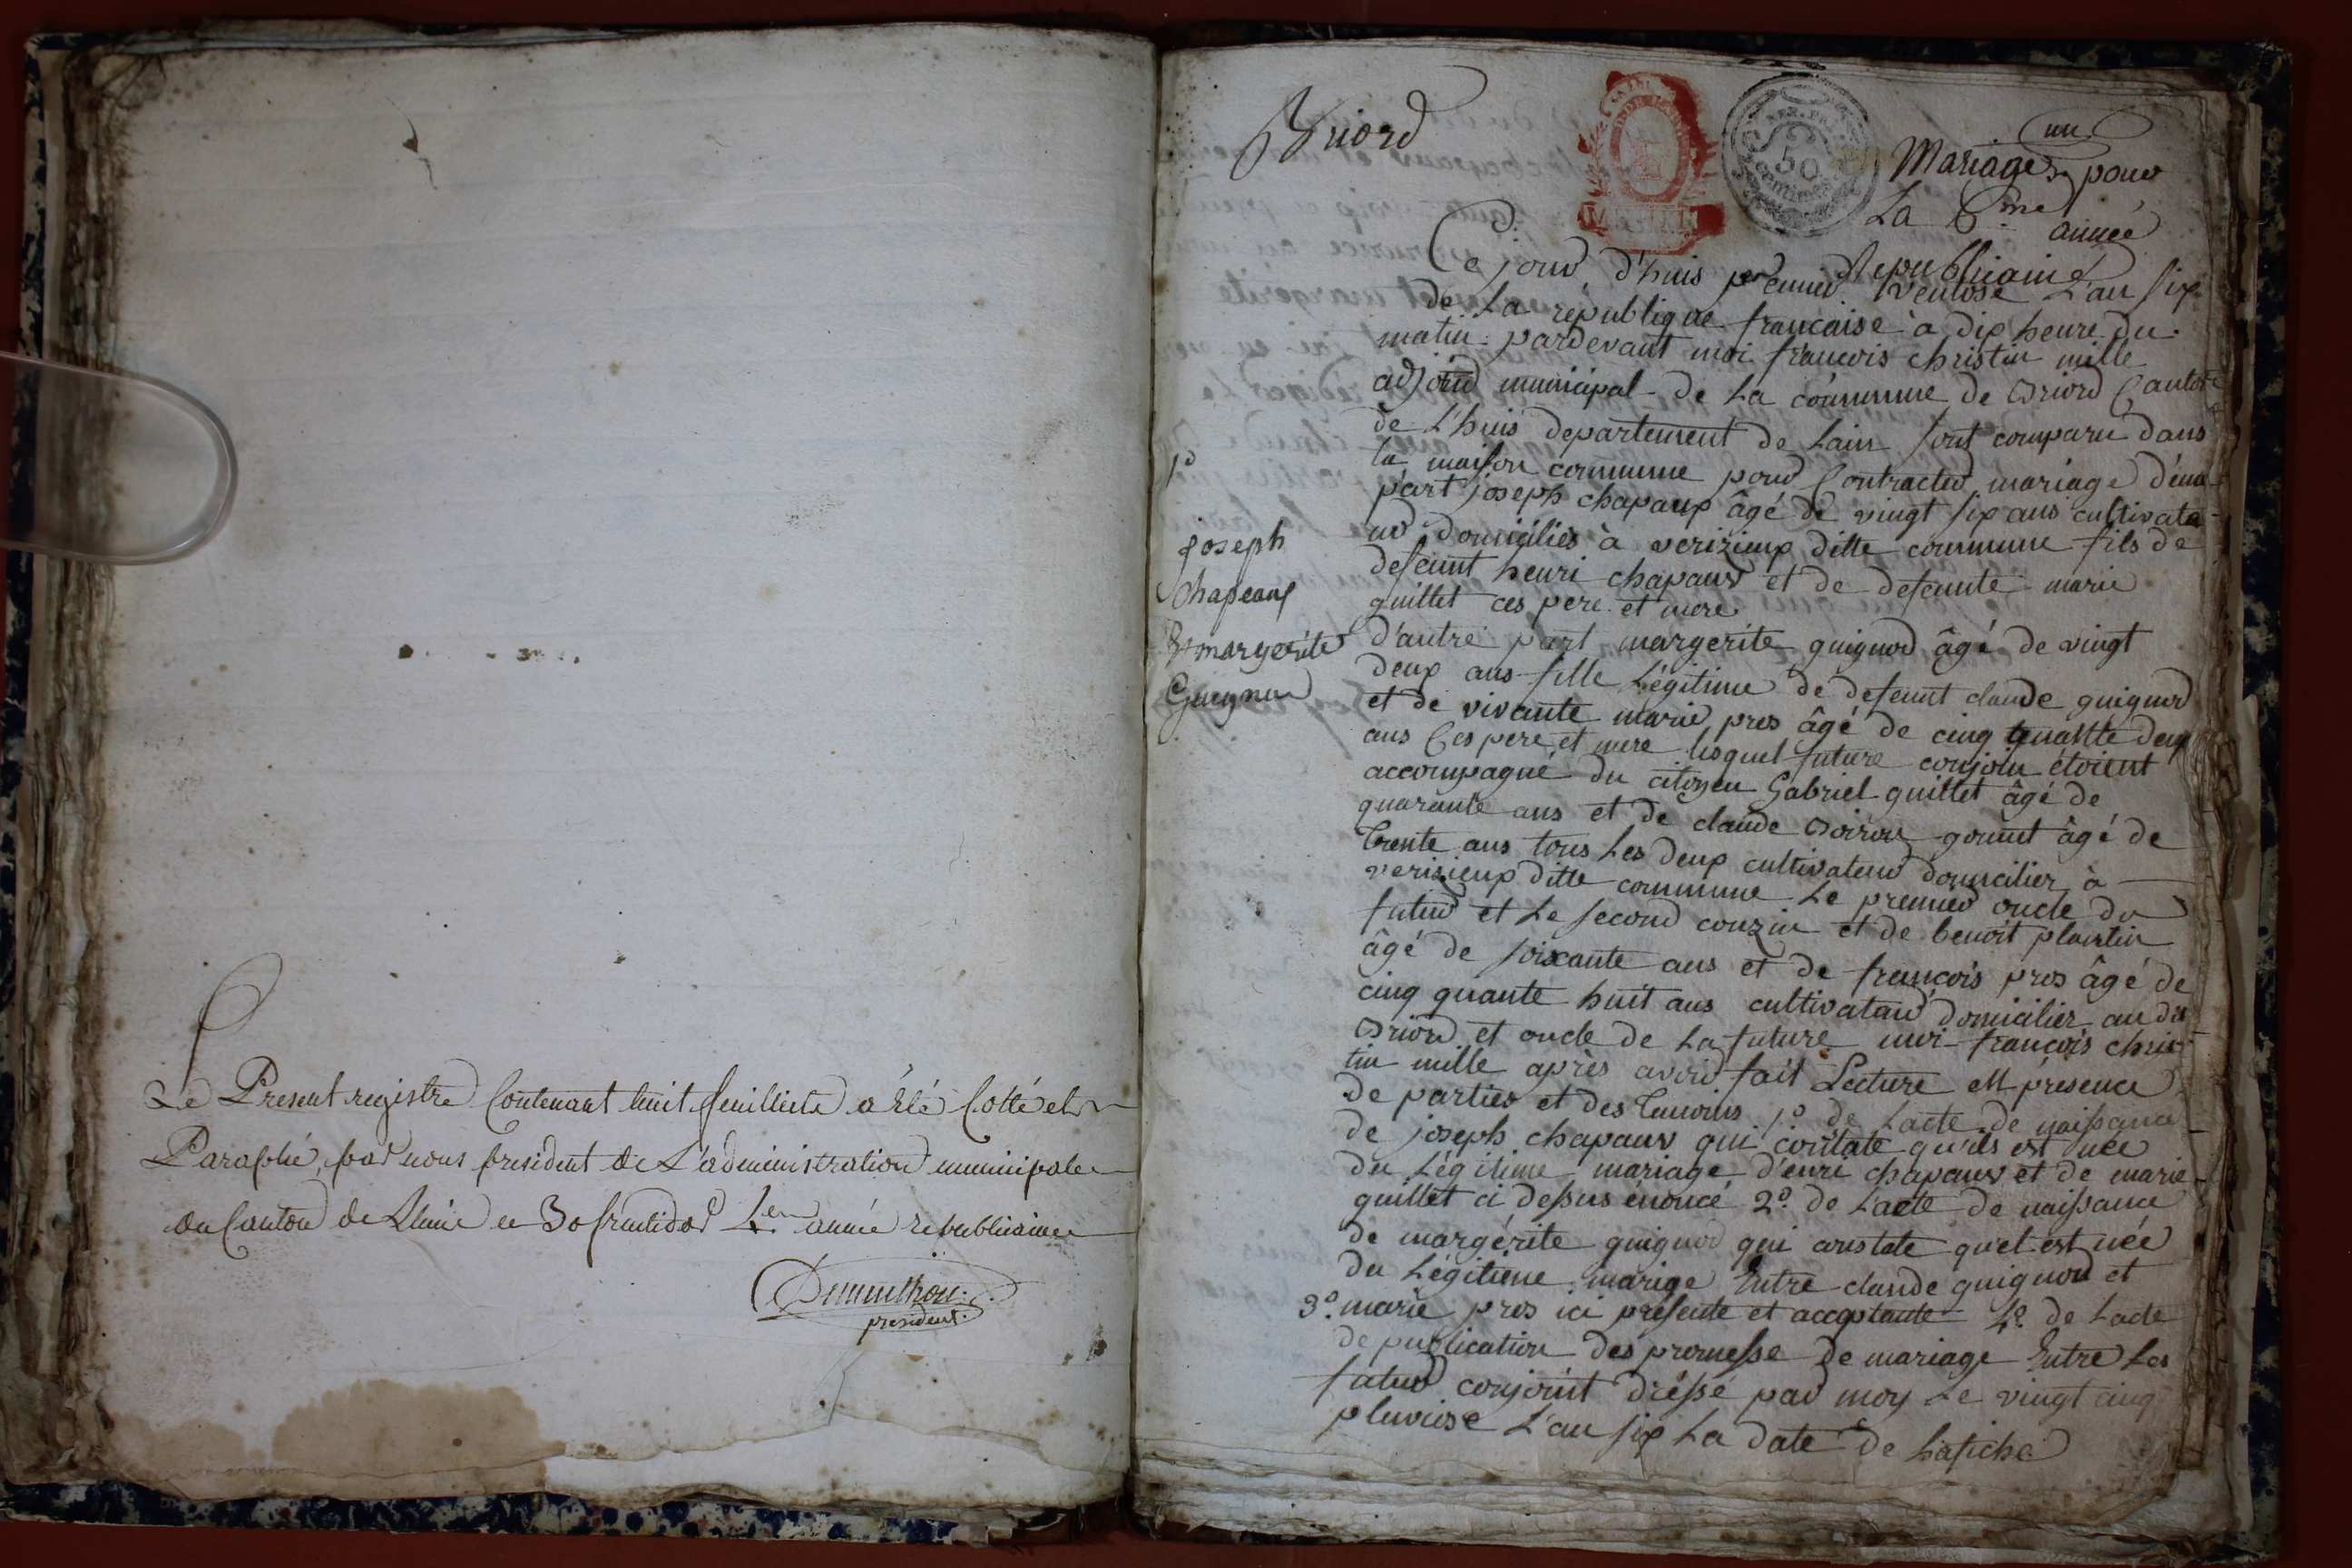 Le Present registre Contenant huit feuillets a été Cotté et
Paraphé, par nous president de L'administration municipale
du Canton de Lhuis ce 30 fructidor année republicaine
president.
Briord
50
centimes
un
Mariages pour
La 6me année
Republicaine
Ce jour d'huis premier Ventose L'an six
de La republique francaise à dix heure du
matin pardevant moi francois christin mille
adjoind municipal de La commune de Briord Canton
de L'huis departement de Lain sont comparu dans
la maison commune pour Contracter mariage d'une
part joseph chapaux âgé de vingt six ans cultivate
ur domiciliés à verizieux ditte commune fils de
defeunt henri chapaux et de defeunte marie
guillet ces pere et mere
d'autre part margerite guignod âgé de vingt
deux ans fille Légitime de defeunt claude guignod
et de vivante marie pros âgé de cinq quante deux
ans Ces pere et mere lisquel future conjoin étoient
accompagné du citoyen Gabriel guillet âgé de
quarante ans et de claude Boiron gonnet âgé de
trente ans tous Les deux cultivateur domicilier à
verizieux ditte commune Le premier oncle du
futur et Le second couzin et de benoit plantin
âgé de soixante ans et de francois pros âgé de
cinq quante huit ans cultivataur domicilier au dit
Briord et oncle de La future moi francois chris
tin mille après avoir fait Lecture en presence
de parties et des temoins 1º de Lacte de naissance
de joseph chapaux qui contate qu'ils est née
du Légitime mariage d'enri chapaux et de marie
guillet ci dessus énoncé 2º de Lacte de naissance
de margérite guignod qui constate qu'el est née
du Légitime marige Entre claude guignod et
3º marie pros ici presente et acceptante 4º de Lacte
de publication des promesse de mariage Entre Les
futur conjoint dréssé par moy Le vingt cinq
pluviose L'an six La date de Lafiche
1º
Joseph
Chapeaux
& margerite
Guignod